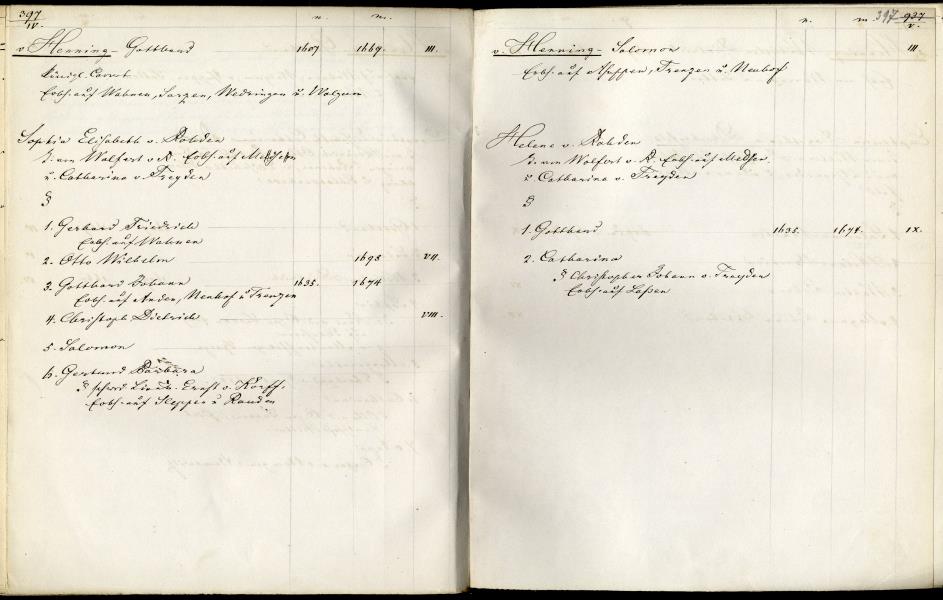 397
IV.
n. m.
v Henning - Gotthard 1607 1669. III.
Königl. Cornet
Erbh. auf Wahnen, Sarzen, Wedringen u. Walgum
Sophia Elisabeth v. Rohden
T. von Wolfert v. R. Erbh. auf Medsen
u. Catharina v. Treyden
§
1. Gerhard Friedrich
Erbh. auf Wahnen
2. Otto Wilhelm 1698 VII.
3. Gotthard Johann 1635. 1674
Erbh. auf Neuhof u Trenzen
4. Christoph Dietrich VIII.
5. Salomon
6. Gertrud Barbara
Ernst v. Korff.
Erbh. auf u Rauden
397 927
V.
n. m.
v. Henning - Salomon III.
Erbh. auf Trenzen u. Neuhof
Helene v. Rohden
T. von Wolfert v. R. Erbh. auf Medsen
u Catharina v. Treyden
§
1. Gotthard 1635. 1674. IX.
2. Catharina
§ Christopher Johann v. Treyden
Erbh. auf Laßen